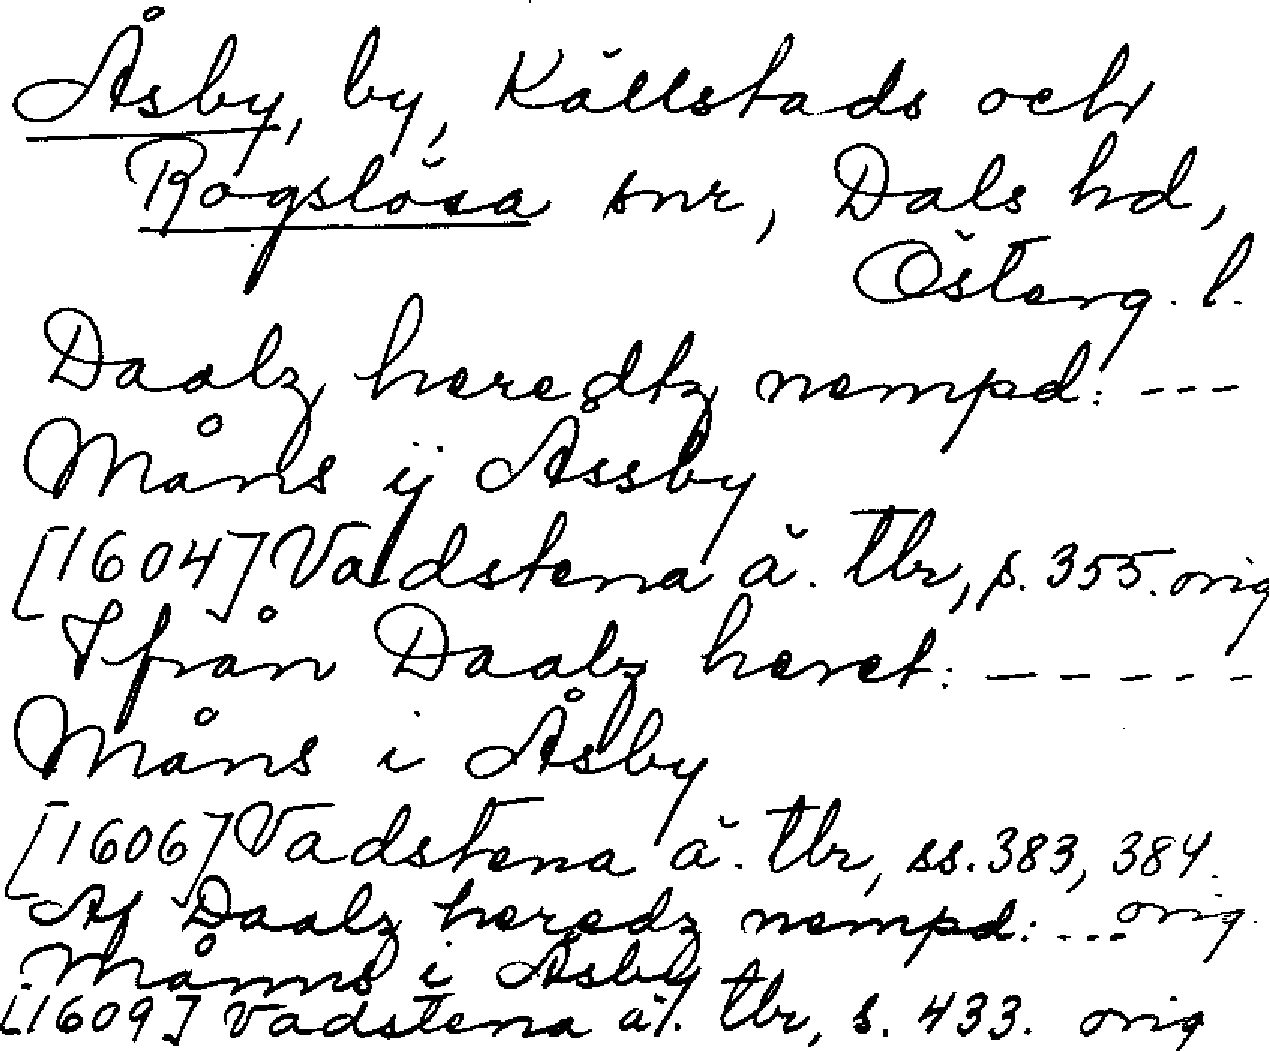 Åsby, by, Källstads och
Rogslösa snr, Dals hd,
Österg. l.
Daalz heredtz nempd: ---
Måns ij Åssby
[1604] Vadstena ä. tbr, s. 355. orig
Ifrån Daalz heret: -----
Måns i Åsby
[1606] Vadstena ä. tbr, ss. 383, 384.
orig.
Af Daalz heredz nempd: ---
Månns i Åsby
[1609] Vadstena ä. tbr, s. 433. orig